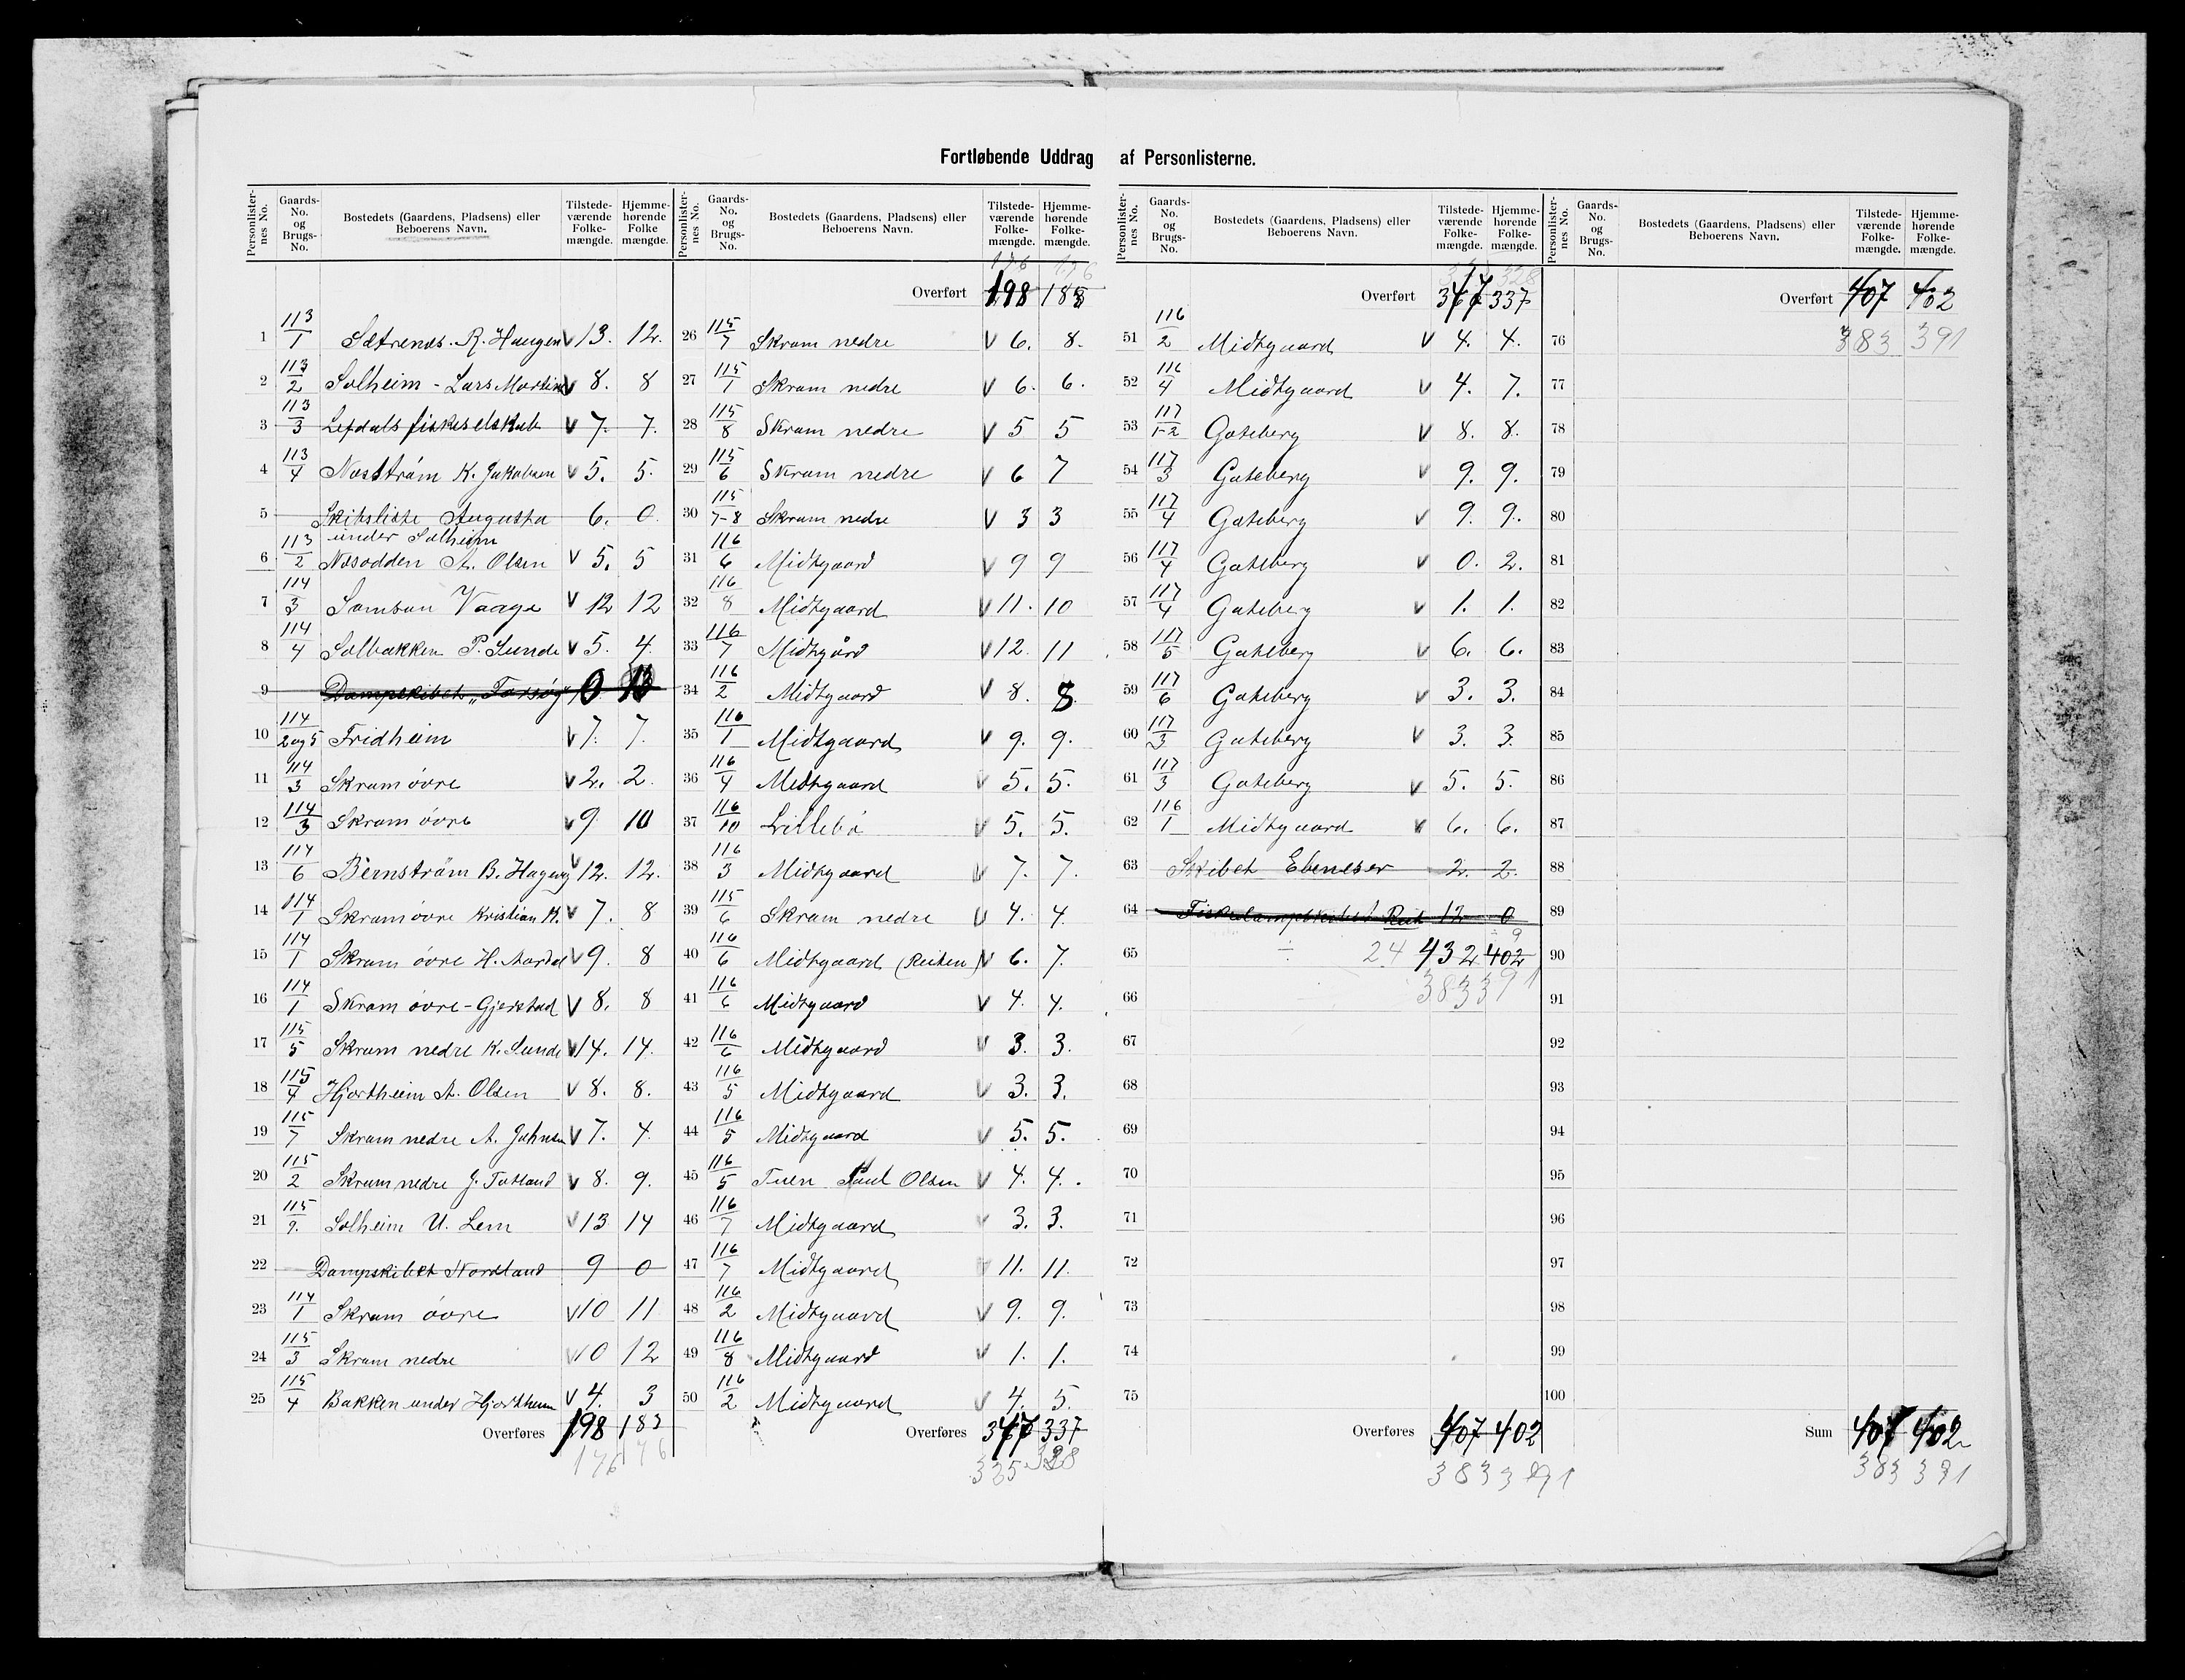 Fortløbende Uddrag af Personlisterne.
Personlisternes No. Gaards-No. og Brugs-No. Bostedets (Gaardens, Pladsens) eller Beboerens Navn. Tilstedeværende Folkemængde. Hjemmehørende Folkemængde.
1 113/1 Sætrenes. R. Haugen V 13. 12.
2 113/2 Solheim - Lars Martin V 8. 8
3 113/3 Lefdals fiskeselskab V 7. 7.
4 113/4 Nosström K. Jakobsen V 5. 5.
5 Skibsliste Augusta 6. 0
6 113/2 under Solheim
Nosodden A. Olsen V 5. 5
7 114/3 Samson Vaage V 12 12
8 114/4 Solbakken P. Sunde V 5. 4.
9 Dampskibet „Forsøg" 0
10 114/2og5 Fridheim V 7. 7.
11 114/3 Skram övre V 2. 2.
12 114/3 Skram övre V 9 10
13 114/6 Bernström B. Hagevij V 12. 12.
14 114/1 Skram övre Kristian K. V 7. 8
15 114/1 Skram övre H. V 9. 8
16 114/1 Skram övre - Gjerstad V 8. 8
17 115/5 Skram nedre K. Sunde V 14. 14.
18 115/4 Hjortheim A. Olsen V 8. 8.
19 115/7 Skram nedre A. Jahnsen V 7. 4.
20 115/2 Skram nedre J. Totland V 8. 9.
21 115/9. Solheim U. Lem V 13 14
22 Dampskibet Nordland 9 0
23 114/1 Skram övre V 10 11
24 115/3 Skram nedre V 10 12
25 115/4 Bakken under Hjortheim V 4. 3
Overføres 198 183
176 176
Personlisternes No. Gaards-No. og Brugs-No. Bostedets (Gaardens, Pladsens) eller Beboerens Navn. Tilstedeværende Folkemængde. Hjemmehørende Folkemængde.
176 176
Overført 198 183
26 115/7 Skram nedre V 6. 8.
27 115/1 Skram nedre V 6. 6.
28 115/8 Skram nedre V 5 5
29 115/6 Skram nedre V 6 7
30 115/7-8 Skram nedre V 3 3
31 116/6 Midtgaard V 9 9
32 116/8 Midtgaard V 11. 10
33 116/7 Midtgård V 12. 11
34 116/2 Midtgaard V 8. 8.
35 116/1 Midtgaard V 9. 9.
36 116/4 Midtgaard V 5. 5.
37 116/10 Lillebö V 5. 5.
38 116/3 Midtgaard V 7. 7.
39 115/6 Skram nedre V 4. 4.
40 116/6 Midtgaard (Reiten) V 6. 7.
41 116/6 Midtgaard V 4. 4.
42 116/6 Midtgaard V 3. 3.
43 116/5 Midtgaard V 3. 3.
44 116/5 Midtgaard V 5. 5.
45 116/5 Tuen Paul Olsen V 4. 4.
46 116/7 Midtgaard V 3. 3.
47 116/7 Midtgaard V 11. 11.
48 116/2 Midtgaard V 9. 9.
49 116/8 Midtgaard V 1. 1.
50 116/2 Midtgaard V 4. 5.
Overføres 347 337
325 328
Personlisternes No. Gaards-No. og Brugs-No. Bostedets (Gaardens, Pladsens) eller Beboerens Navn. Tilstedeværende Folkemængde. Hjemmehørende Folkemængde.
328
Overført 347 337
51 116/2 Midtgaard V 4. 4.
52 116/4 Midtgaard V 4. 7.
53 117/1-2 Gateberg V 8. 8.
54 117/3 Gateberg V 9. 9.
55 117/4 Gateberg V 9. 9.
56 117/4 Gateberg V 0. 2.
57 117/4 Gateberg V 1. 1.
58 117/5 Gateberg V 6. 6.
59 117/6 Gateberg V 3. 3.
60 117/3 Gateberg V 3. 3.
61 117/3 Gateberg V 5. 5.
62 116/1 Midtgaard V 6. 6.
63 Skibet Ebeneser 2. 2.
64 12 0
65 ÷ 24 432 402 9
66 383 391
67
68
69
70
71
72
73
74
75
Overføres 407 402
383 391
Personlisternes No. Gaards-No. og Brugs-No. Bostedets (Gaardens, Pladsens) eller Beboerens Navn. Tilstedeværende Folkemængde. Hjemmehørende Folkemængde.
Overført 407 402
76 383 391
77
78
79
80
81
82
83
84
85
86
87
88
89
90
91
92
93
94
95
96
97
98
99
100
Sum 407 402
383 391